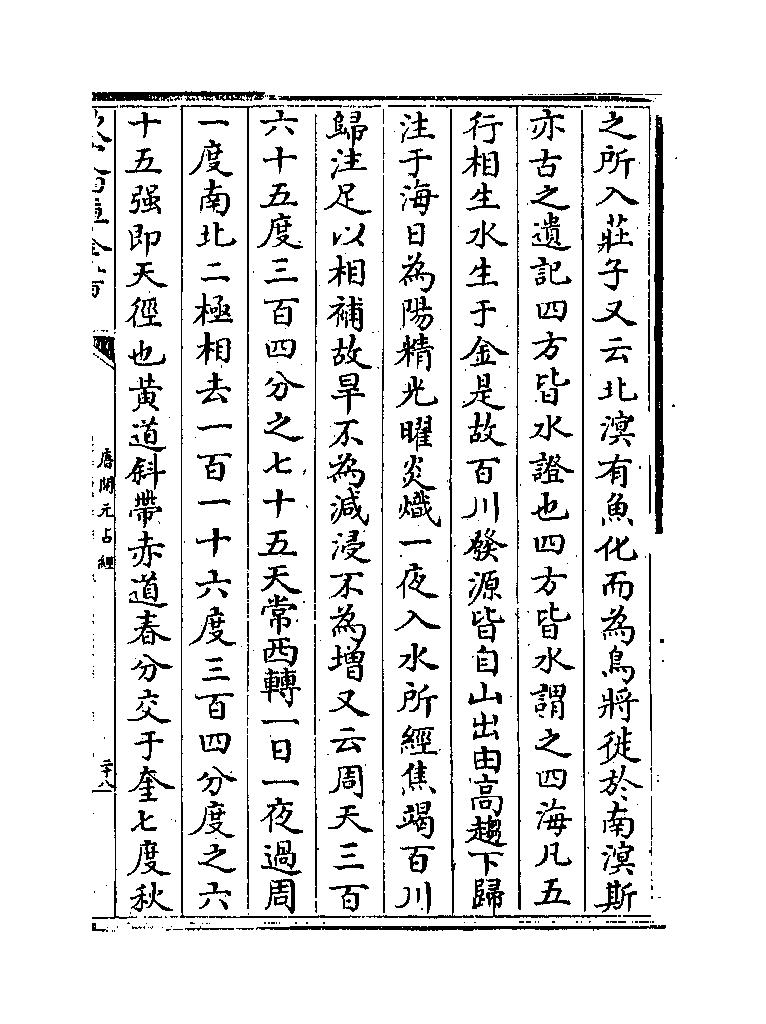 之所入莊子又云北溟有魚化而為鳥將徙於南溟斯
亦古之遺記四方皆水證也四方皆水謂之四海凡五
行相生水生于金是故百川發源皆自山出由高趨下歸
注于海日為陽精光曜炎熾一夜入水所經焦竭百川
歸注足以相補故旱不為減浸不為增又云周天三百
六十五度三百四分之七十五天常西轉一日一夜過周
一度南北二極相去一百一十六度三百四分度之六
十五强即天徑也黄道斜帶赤道春分交于奎七度秋
唐開元占經
二十八